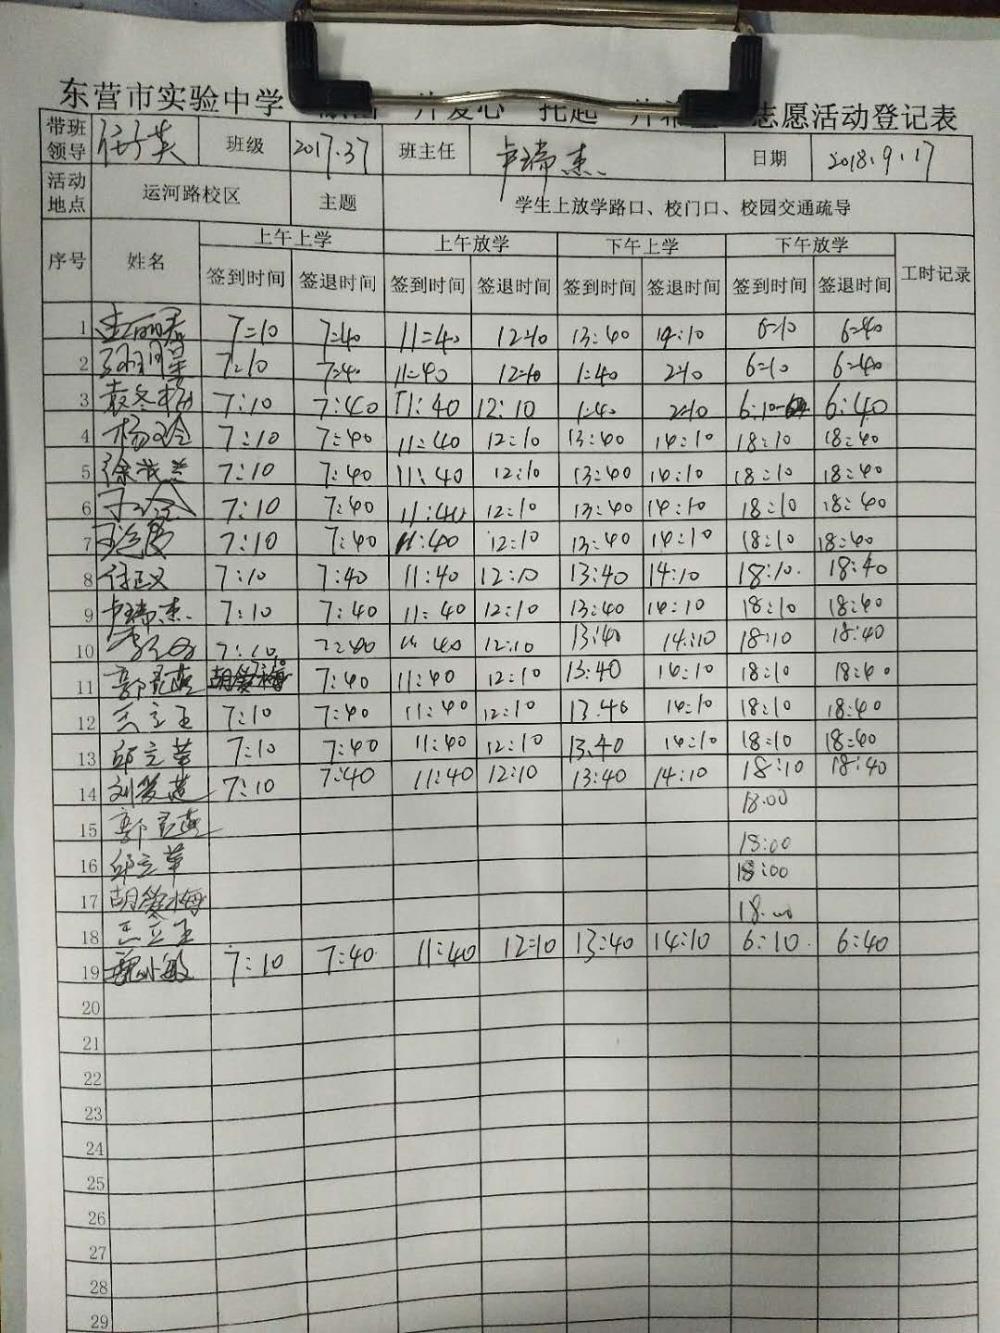 东营市实验中学 片爱心 托起 片 志愿活动登记表
带班领导 班级 2017.37 班主任 卢瑞杰 日期 2018.9.17
活动地点 运河路校区 主题 学生上放学路口、校门口、校园交通疏导
序号 姓名 上午上学 上午放学 下午上学 下午放学 工时记录
签到时间 签退时间 签到时间 签退时间 签到时间 签退时间 签到时间 签退时间
1 7:10 7:40 11:40 12:10 13:40 14:10 6:10 6:40
2 7:10 7:40 11:40 12:10 1:40 2:10 6:10 6:40
3 袁冬梅 7:10 7:40 11:40 12:10 1:40 2:10 6:10 6:40
4 7:10 7:40 11:40 12:10 13:40 14:10 18:10 18:40
5 7:10 7:40 11:40 12:10 13:40 14:10 18:10 18:40
6 7:10 7:40 11:40 12:10 13:40 14:10 18:10 18:40
7 7:10 7:40 11:40 12:10 13:40 14:10 18:10 18:40
8 7:10 7:40 11:40 12:10 13:40 14:10 18:10. 18:40
9 卢瑞杰 7:10 7:40 11:40 12:10 13:40 14:10 18:10 18:40
10 7:10 7:40 11:40 12:10 13:40 14:10 18:10 18:40
11 7:10 7:40 11:40 12:10 13:40 14:10 18:10 18:40
12 7:10 7:40 11:40 12:10 13.40 14:10 18:10 18:40
13 邱立革 7:10 7:40 11:40 12:10 13.40 14:10 18:10 18:40
14 7:10 7:40 11:40 12:10 13:40 14:10 18:10 18:40
15 18:00
16 邱立革 18:00
17 18:00
18 18:00
19 7:10 7:40 11:40 12:10 13:40 14:10 6:10 6:40
20
21
22
23
24
25
26
27
28
29